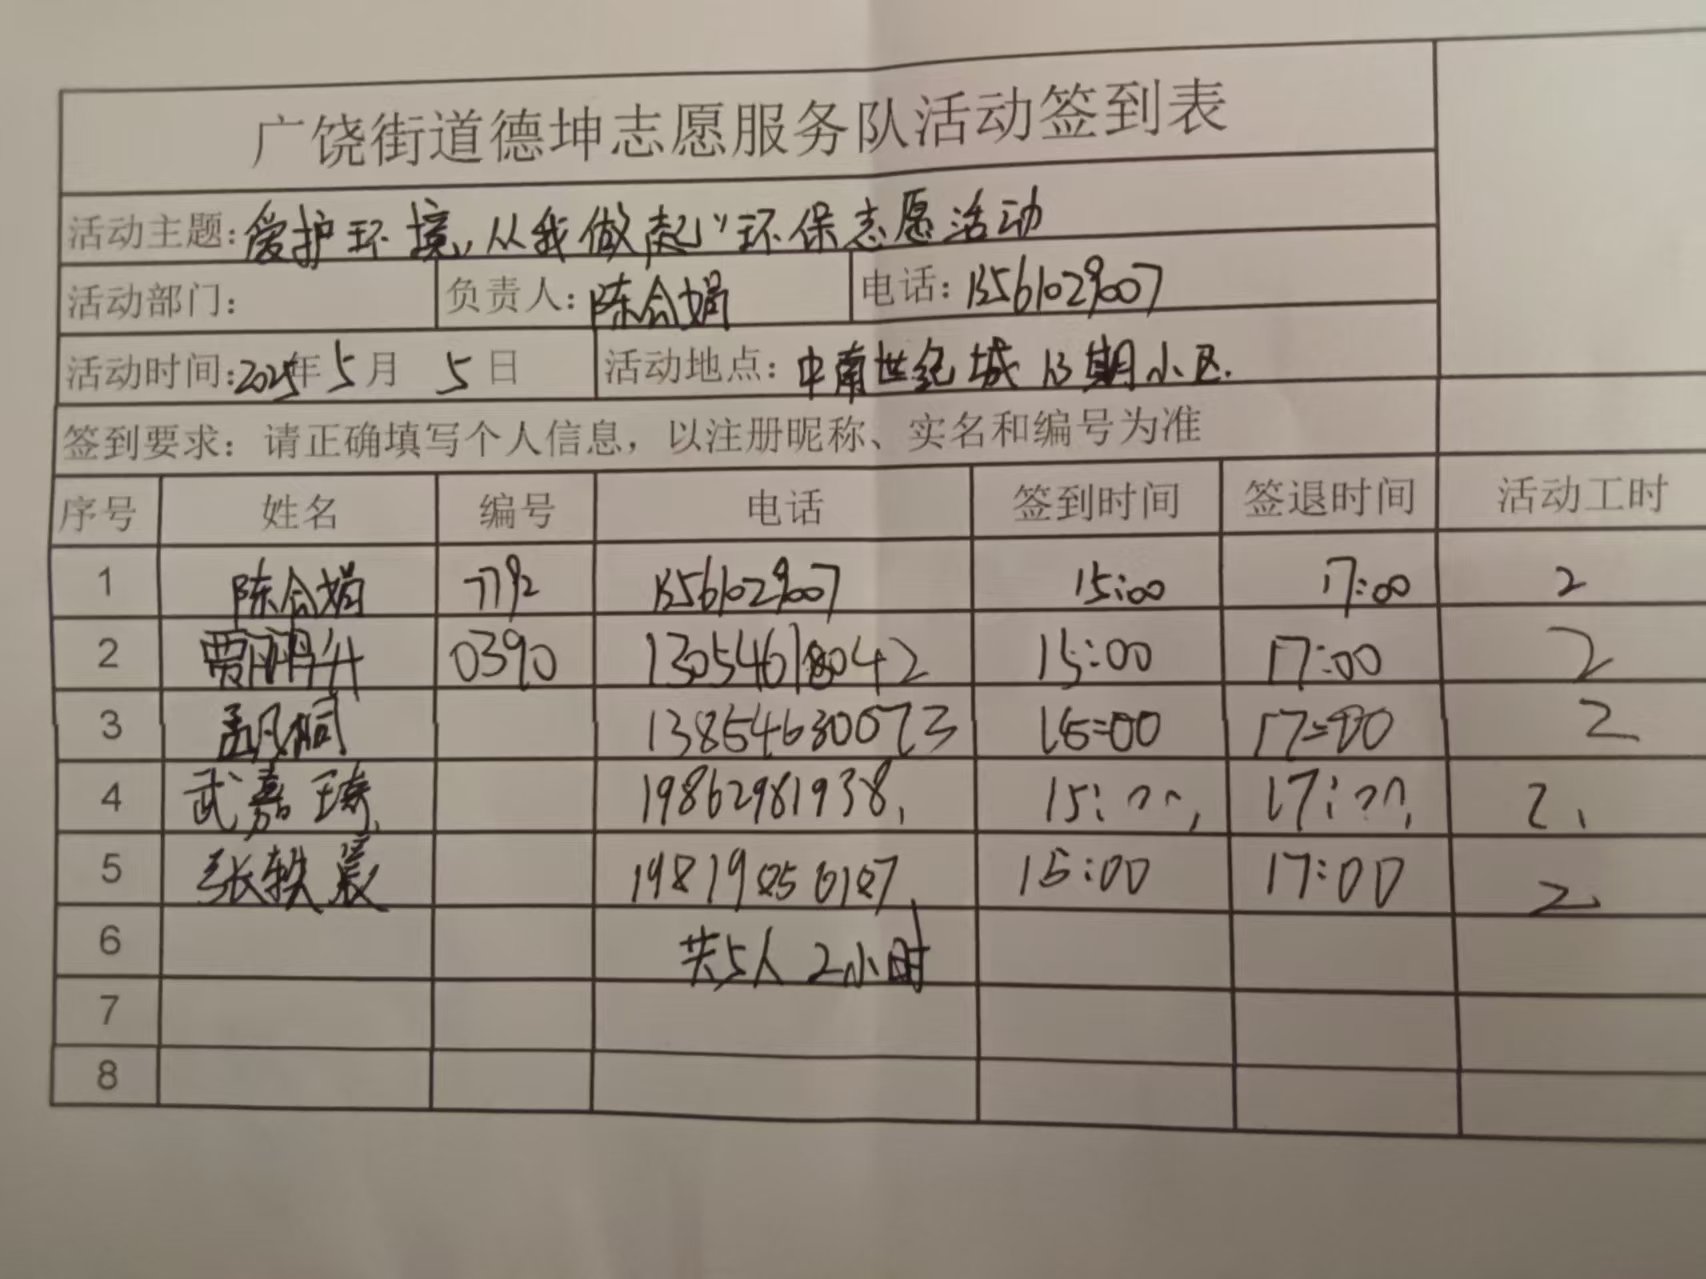 广饶街道德坤志愿服务队活动签到表
活动主题: 爱护环境,从我做起"环保志愿活动
活动部门: 负责人: 陈会娟 电话: 15561029007
活动时间: 2025年5月5日 活动地点: 中南世纪城13期小区.
签到要求: 请正确填写个人信息，以注册昵称、实名和编号为准
序号 姓名 编号 电话 签到时间 签退时间 活动工时
1 陈会娟 7792 15561029007 15:00 17:00 2
2 0390 13054618042 15:00 17:00 2
3 13854630073 15:00 17:00 2
4 武嘉琦. 19862981938. 15:00. 17:00. 2.
5 张轶晨 17:00 2.
6 共5人 2小时
7
8